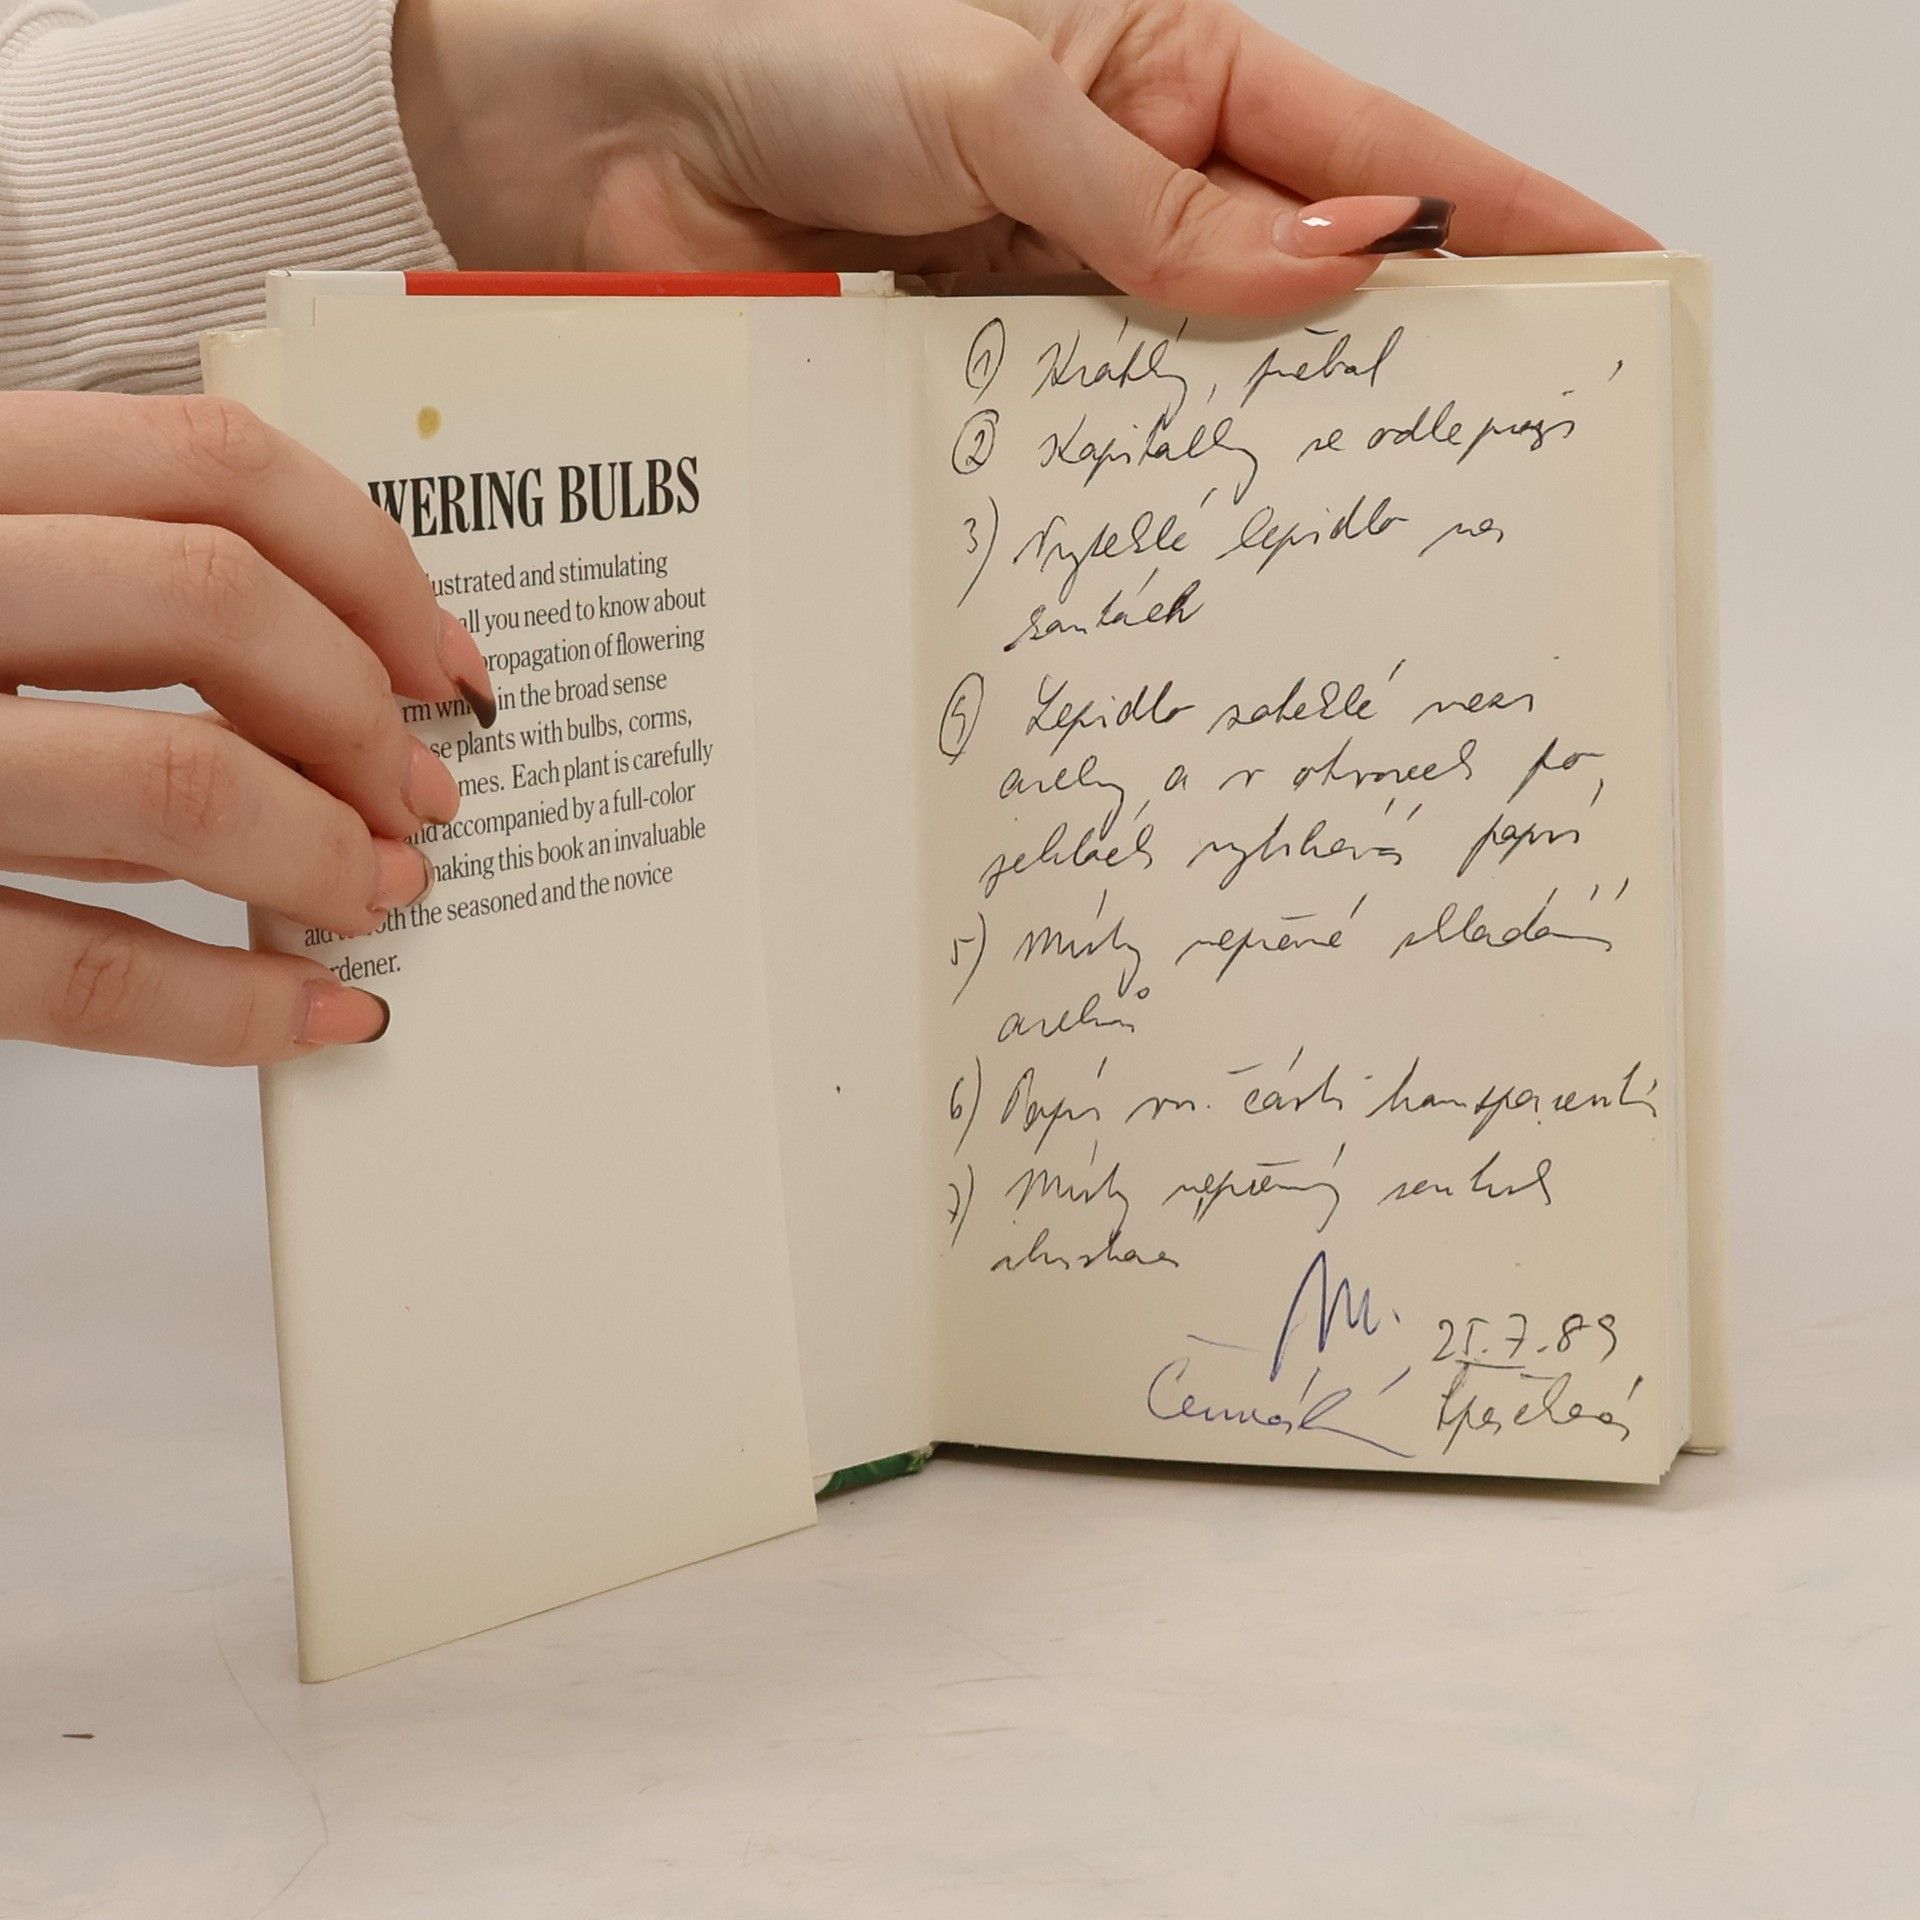 WERING BULBS
lustrated and stimulating
all you need to know about
propagation of flowering
rm whi in the broad sense
se plants with bulbs, corms,
mes. Each plant is carefully
and accompanied by a full-color
making this book an invaluable
aid to both the seasoned and the novice
rdener.
1) Krátký přebal
2) Kapitálky se odlepují
3) Vyteklé lepidlo na
kantách
4) Lepidlo zateklé mezi
archy a v otvorech po
jehlách vytrhává papír
5) Místy nepřesné skládání
archů
6) Papír vn. části transparentní
7) Místy nepřesný soutisk
ilustrace
25.7.89